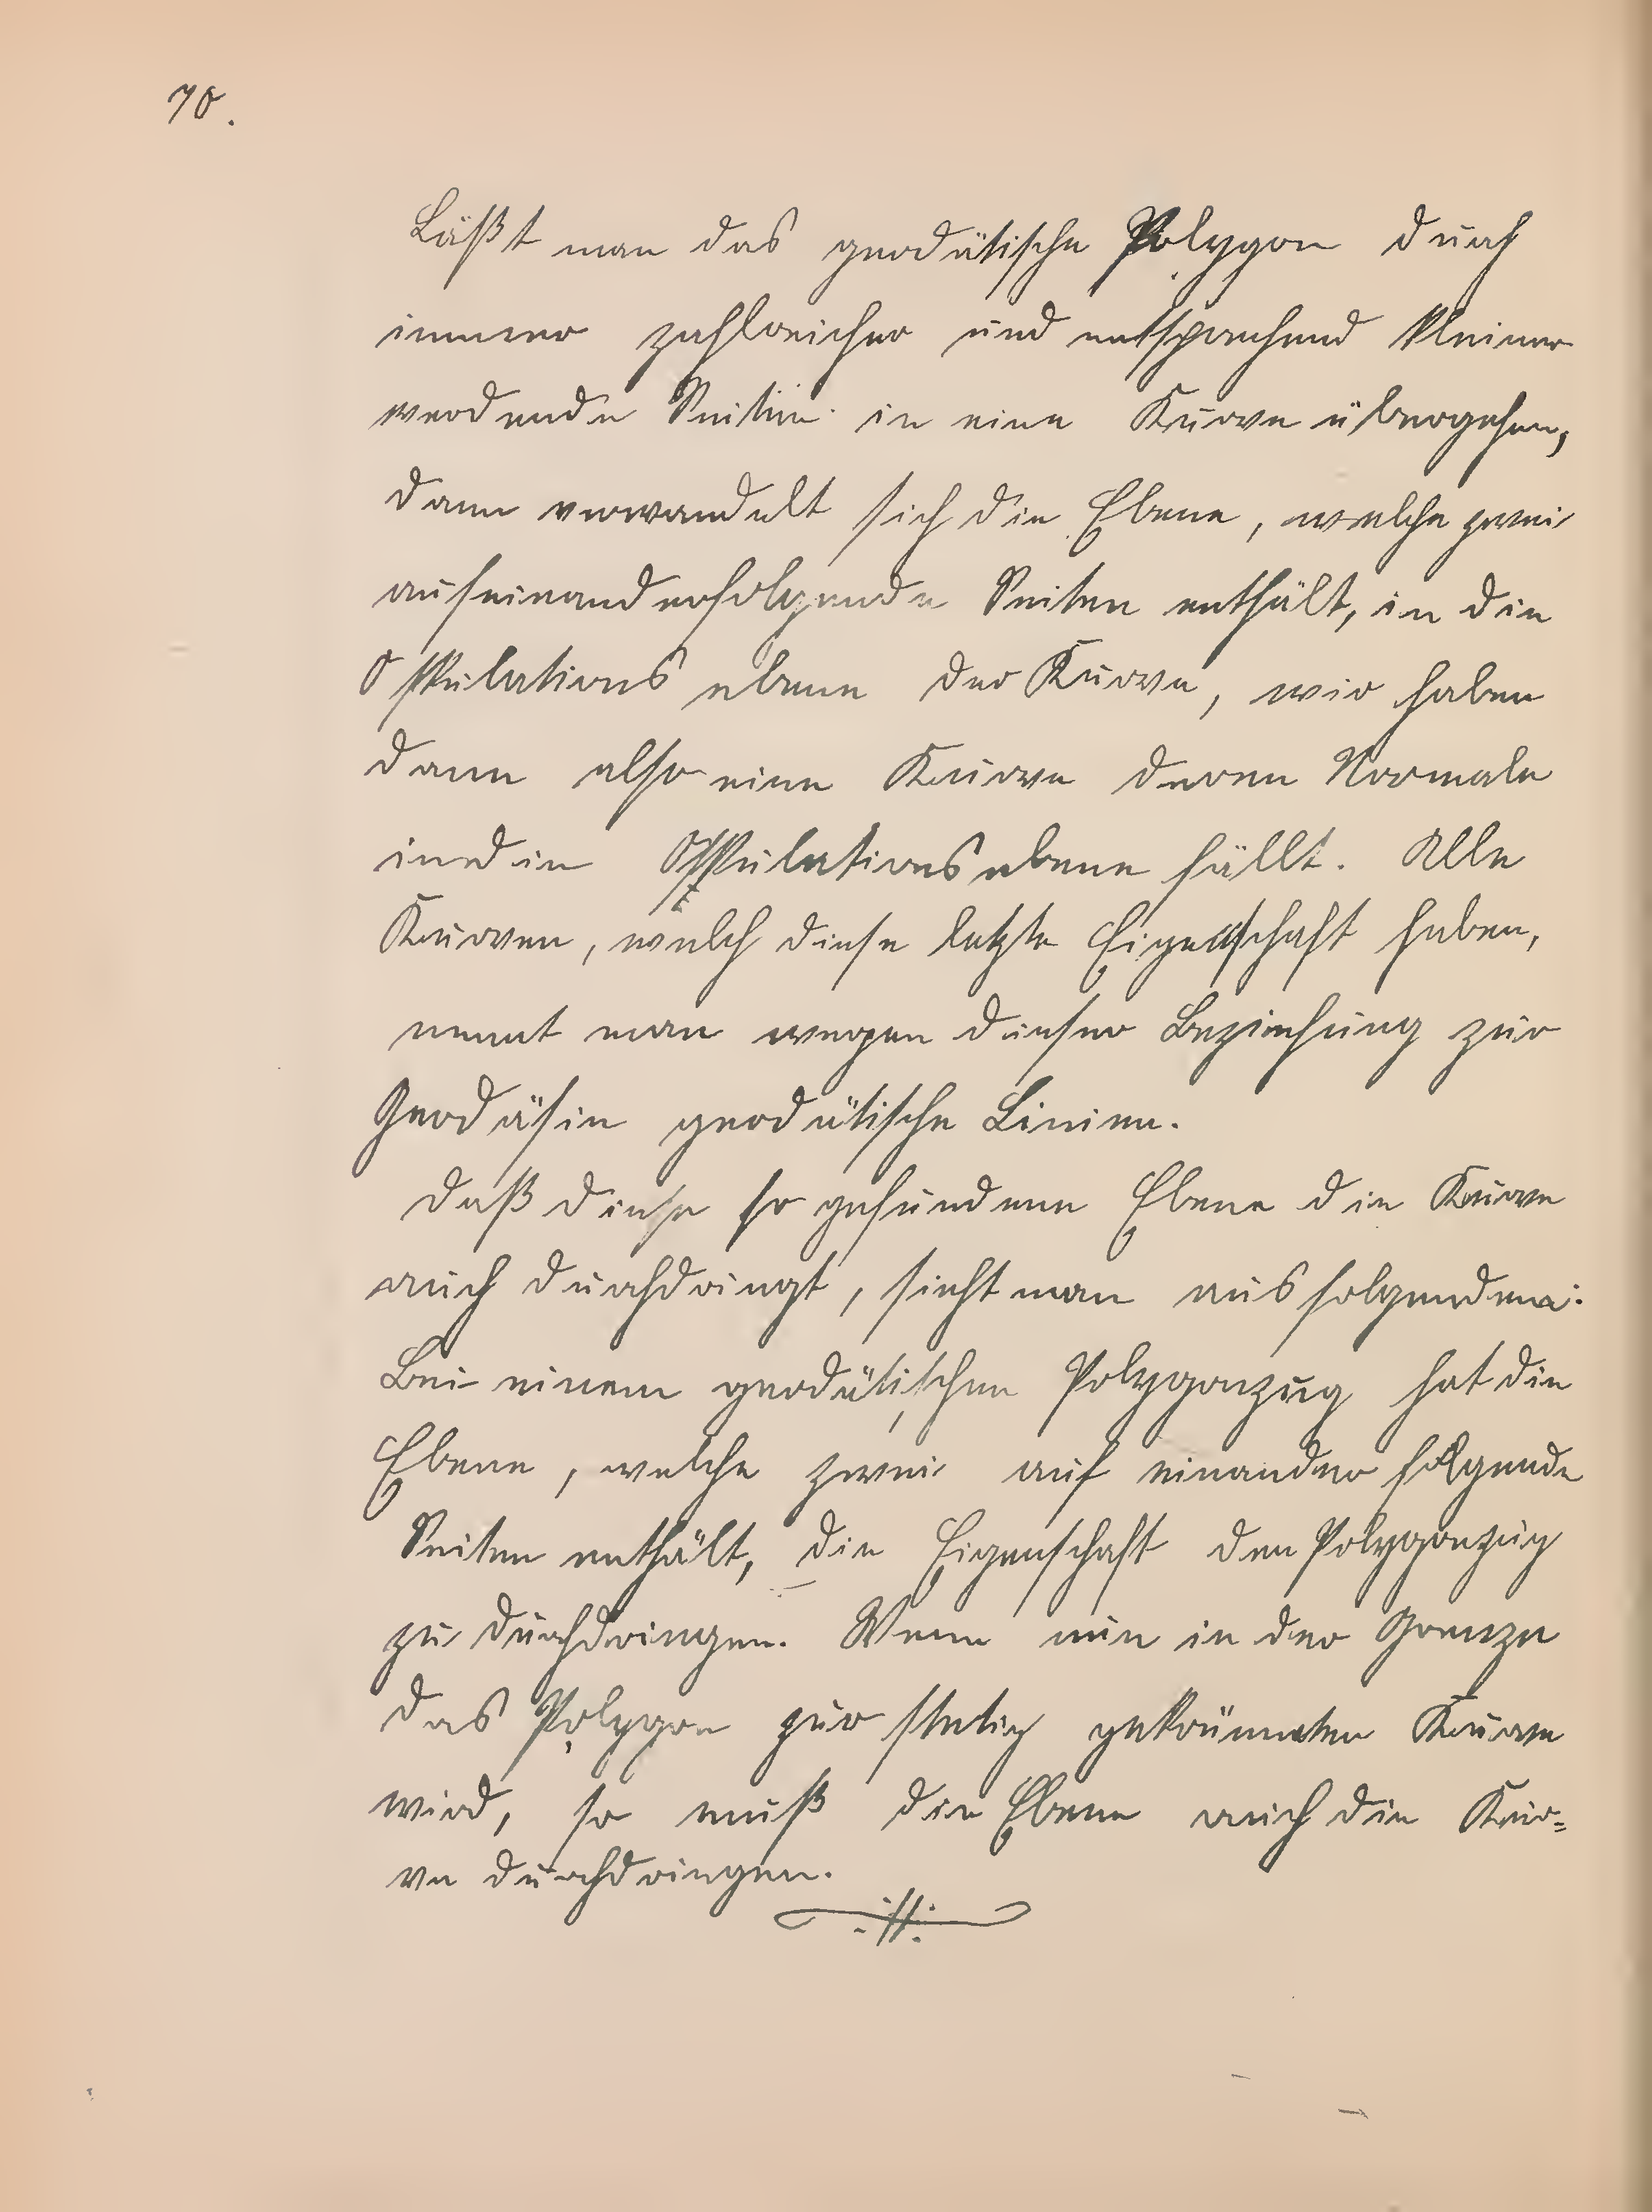 70.
Läßt man das geodätische Polygon durch
immer zahlreicher und entsprechend kleiner
werdende Seiten in eine Kurve übergehen,
dann verwandelt sich die Ebene, welche zwei
aufeinanderfolgende Seiten enthält, in die
Oskulations ebene der Kurve, wir haben
dann also eine Kurve deren Normale
in die Oskulationsebene fällt. Alle
Kurven, welch diese letzte Eigenschaft haben,
nennt man wegen dieser Beziehung zur
Geodäsie geodätische Linien.
Daß diese so gefundene Ebene die Kurve
auch durchdringt, sieht man aus folgendem:
Bei einem geodätischen Polygonzug hat die
Ebene, welche zwei auf einander folgende
Seiten enthält, die Eigenschaft den Polygonzug
zu durchdringen. Wenn nun in der Grenze
das Polygon zur stetig gekrümmten Kurve
wird, so muß die Ebene auch die Kur=
ve durchdringen.